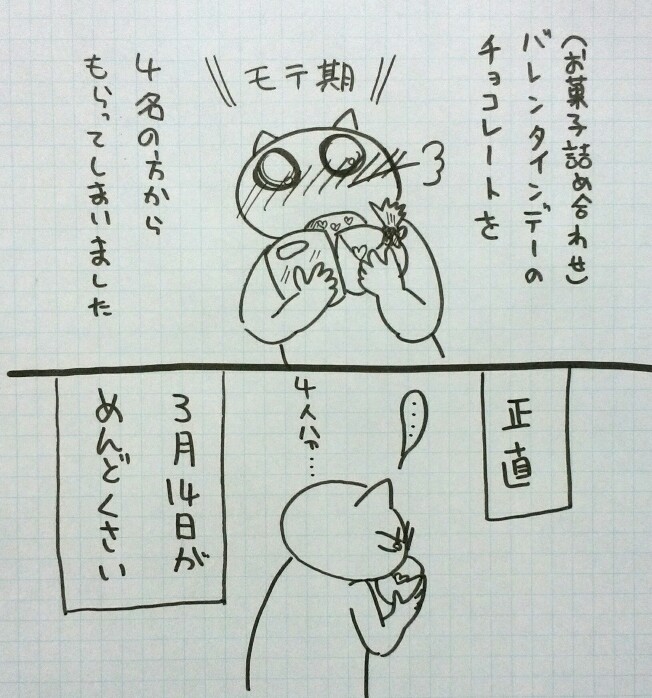 (お菓子詰め合わせ)
バレンタインデーの
チョコレートを
モテ期
4名の方から
もらってしまいました
正直
……
4人分……
3月14日が
めんどくさい